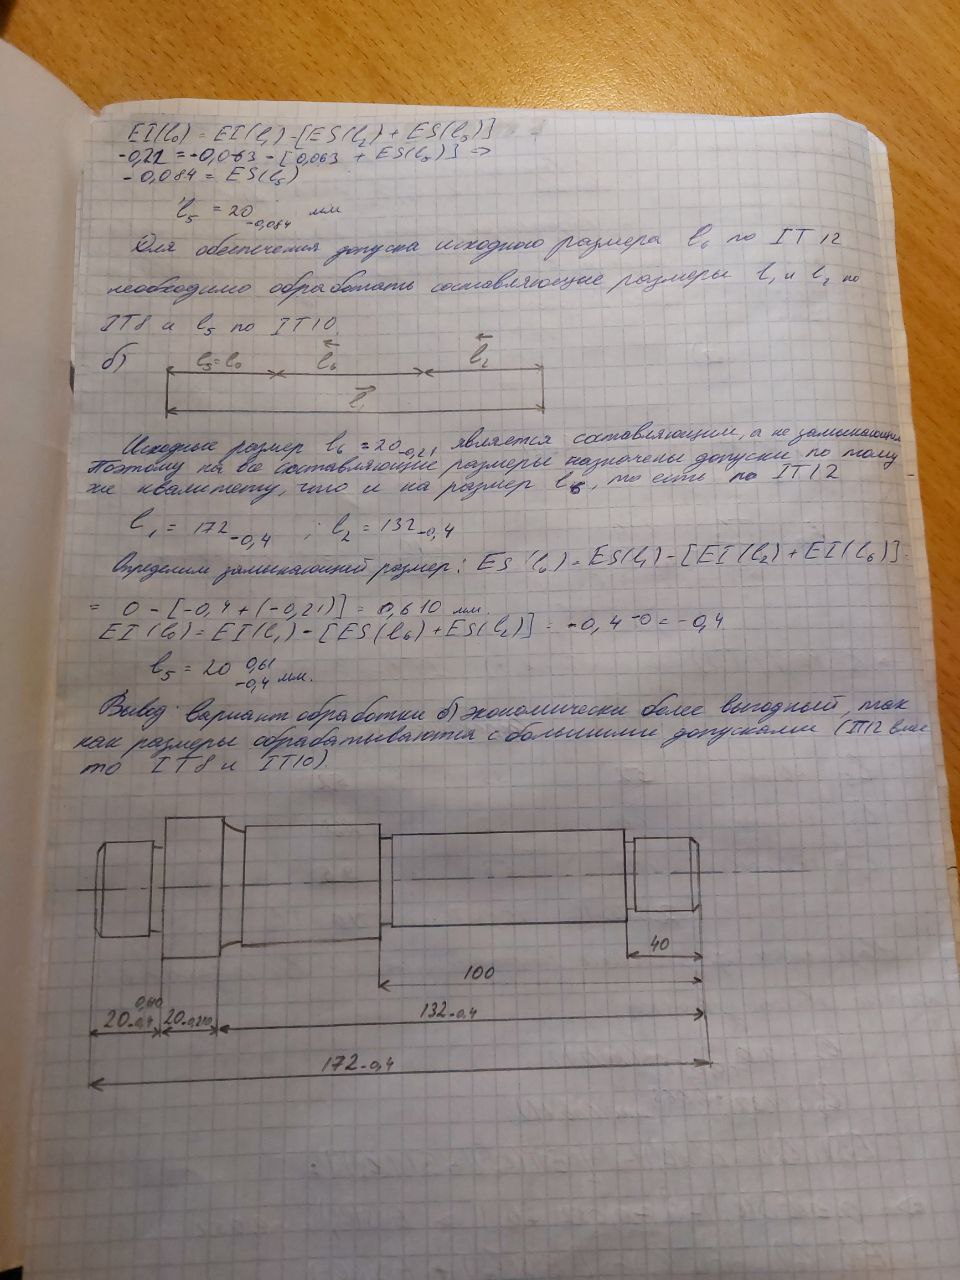 EI(l₀) = EI(l₁) - [ES(l₂) + ES(l₅)]
-0,21 = -0,063 - [0,063 + ES(l₅)] =>
- 0,084 = ES(l₅)
l₅ = 20 -0,084 мм
Для обеспечения допуска исходного размера l₆ по IT 12
необходимо обработать составляющие размеры l₁ и l₂ по
IT8 и l₅ по IT10.
б) l₅=l₀ l₆ l₂
l₁
Исходные размер l₆ = 20 -0,21 является составляющим, а не замыкающим
Поэтому на все составляющие размеры назначены допуски по тому
же квалитету, что и на размер l₆, то есть по IT12
l₁ = 172 -0,4 ; l₂ = 132 -0,4
Определим замыкающий размер: ES(l₀) = ES(l₁) - [EI(l₂) + EI(l₆)] =
= 0 - [-0,4 + (-0,21)] = 0,610 мм.
EI(l₀) = EI(l₁) - [ES(l₆) + ES(l₂)] = -0,4 -0 = -0,4
l₅ = 20 0,61 -0,4 мм.
Вывод: Вариант обработки б) экономически более выгодный, так
как размеры обрабатываются с большими допусками (IT12 вме
то IT8 и IT10)
40
100
20 0,610 -0,4 20 -0,210 132 -0,4
172 -0,4